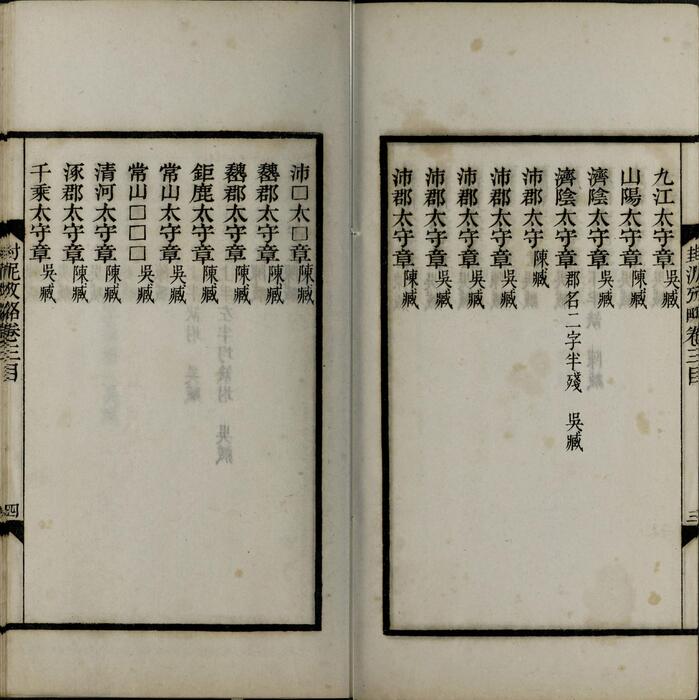 封泥攷略卷三目
三
九江太守章吳臧
山陽太守章陳臧
濟陰太守章吳臧
濟陰太守章郡名二字半殘 吳臧
沛郡太守陳臧
沛郡太守章吳臧
沛郡太守章吳臧
沛郡太守章吳臧
沛郡太守章陳臧
沛□太□章陳臧
魏郡太守章吳臧
魏郡太守章陳臧
鉅鹿太守章陳臧
常山太守章吳臧
常山□□□吳臧
清河太守章陳臧
涿郡太守章陳臧
千乘太守章吳臧
封泥攷略卷三目
四